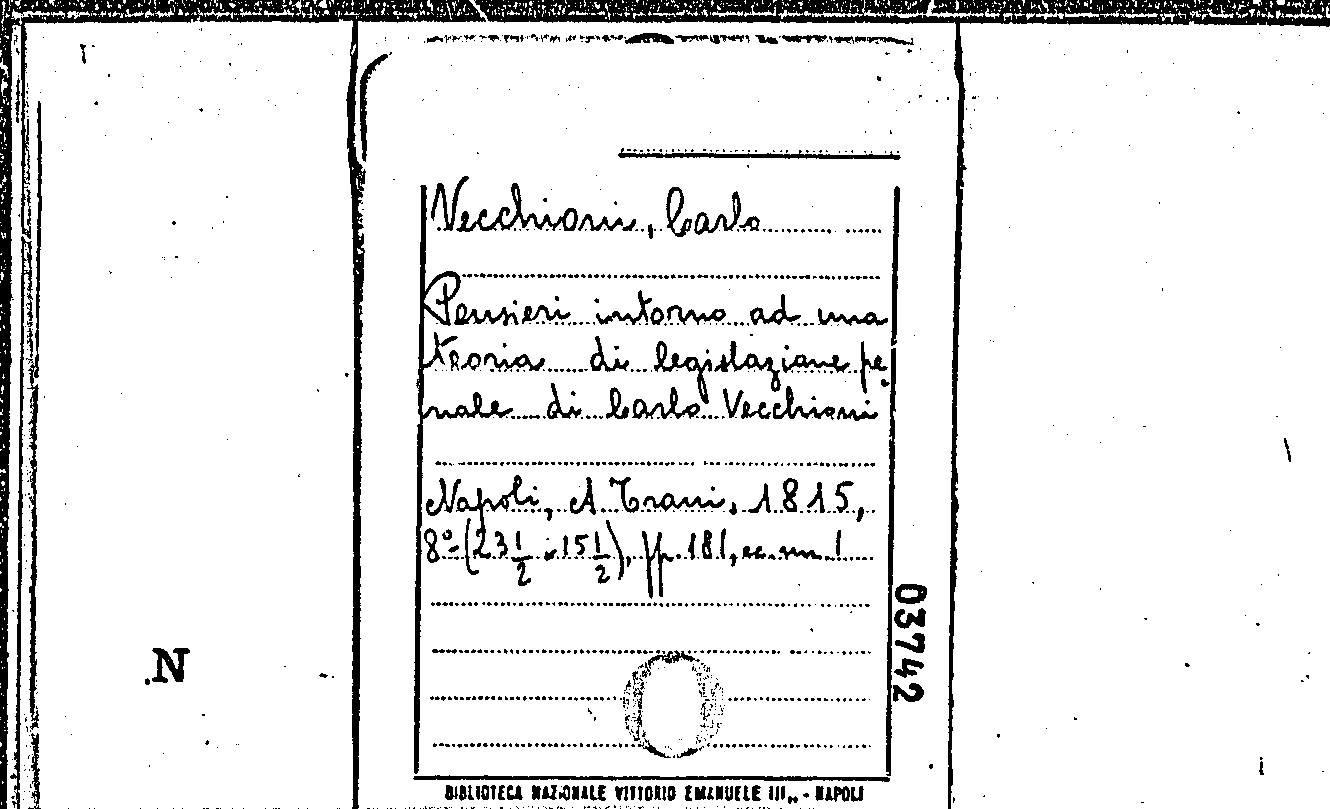 Vecchioni, Carlo
Pensieri intorno ad una
teoria di legislazione pe
nale di Carlo Vecchioni
Napoli, A Trani, 1815,
8°-(23 1/2 x 15 1/2), pp. 181, ec. nn. 1
03742
N
BIBLIOTECA NAZIONALE VITTORIO EMANUELE III„ - NAPOLI